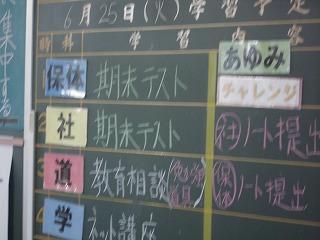 6月25日(火)学習予定
時 科 学習内容
あゆみ
保体 期末テスト
チャレンジ
社 期末テスト 社ノート提出
道 教育相談 保体ノート提出
学 ネット講座
集中する